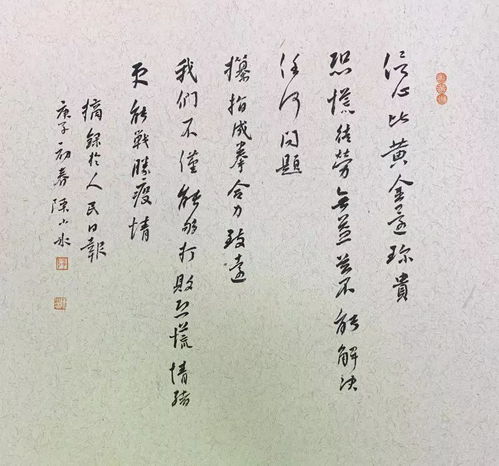 信心比黃金還珍貴
恐慌徒勞無益並不能解决
任何問題
攥指成拳合力致遠
我們不僅能够打敗恐慌情緒
更能戰勝疫情
摘錄於人民日報
庚子初春陳小水